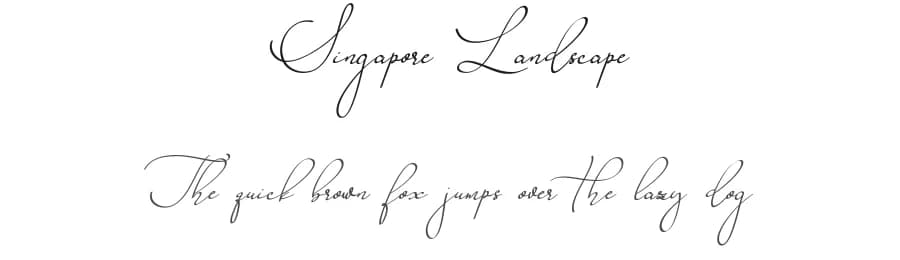 Singapore Landscape
The quick brown fox jumps over the lazy dog